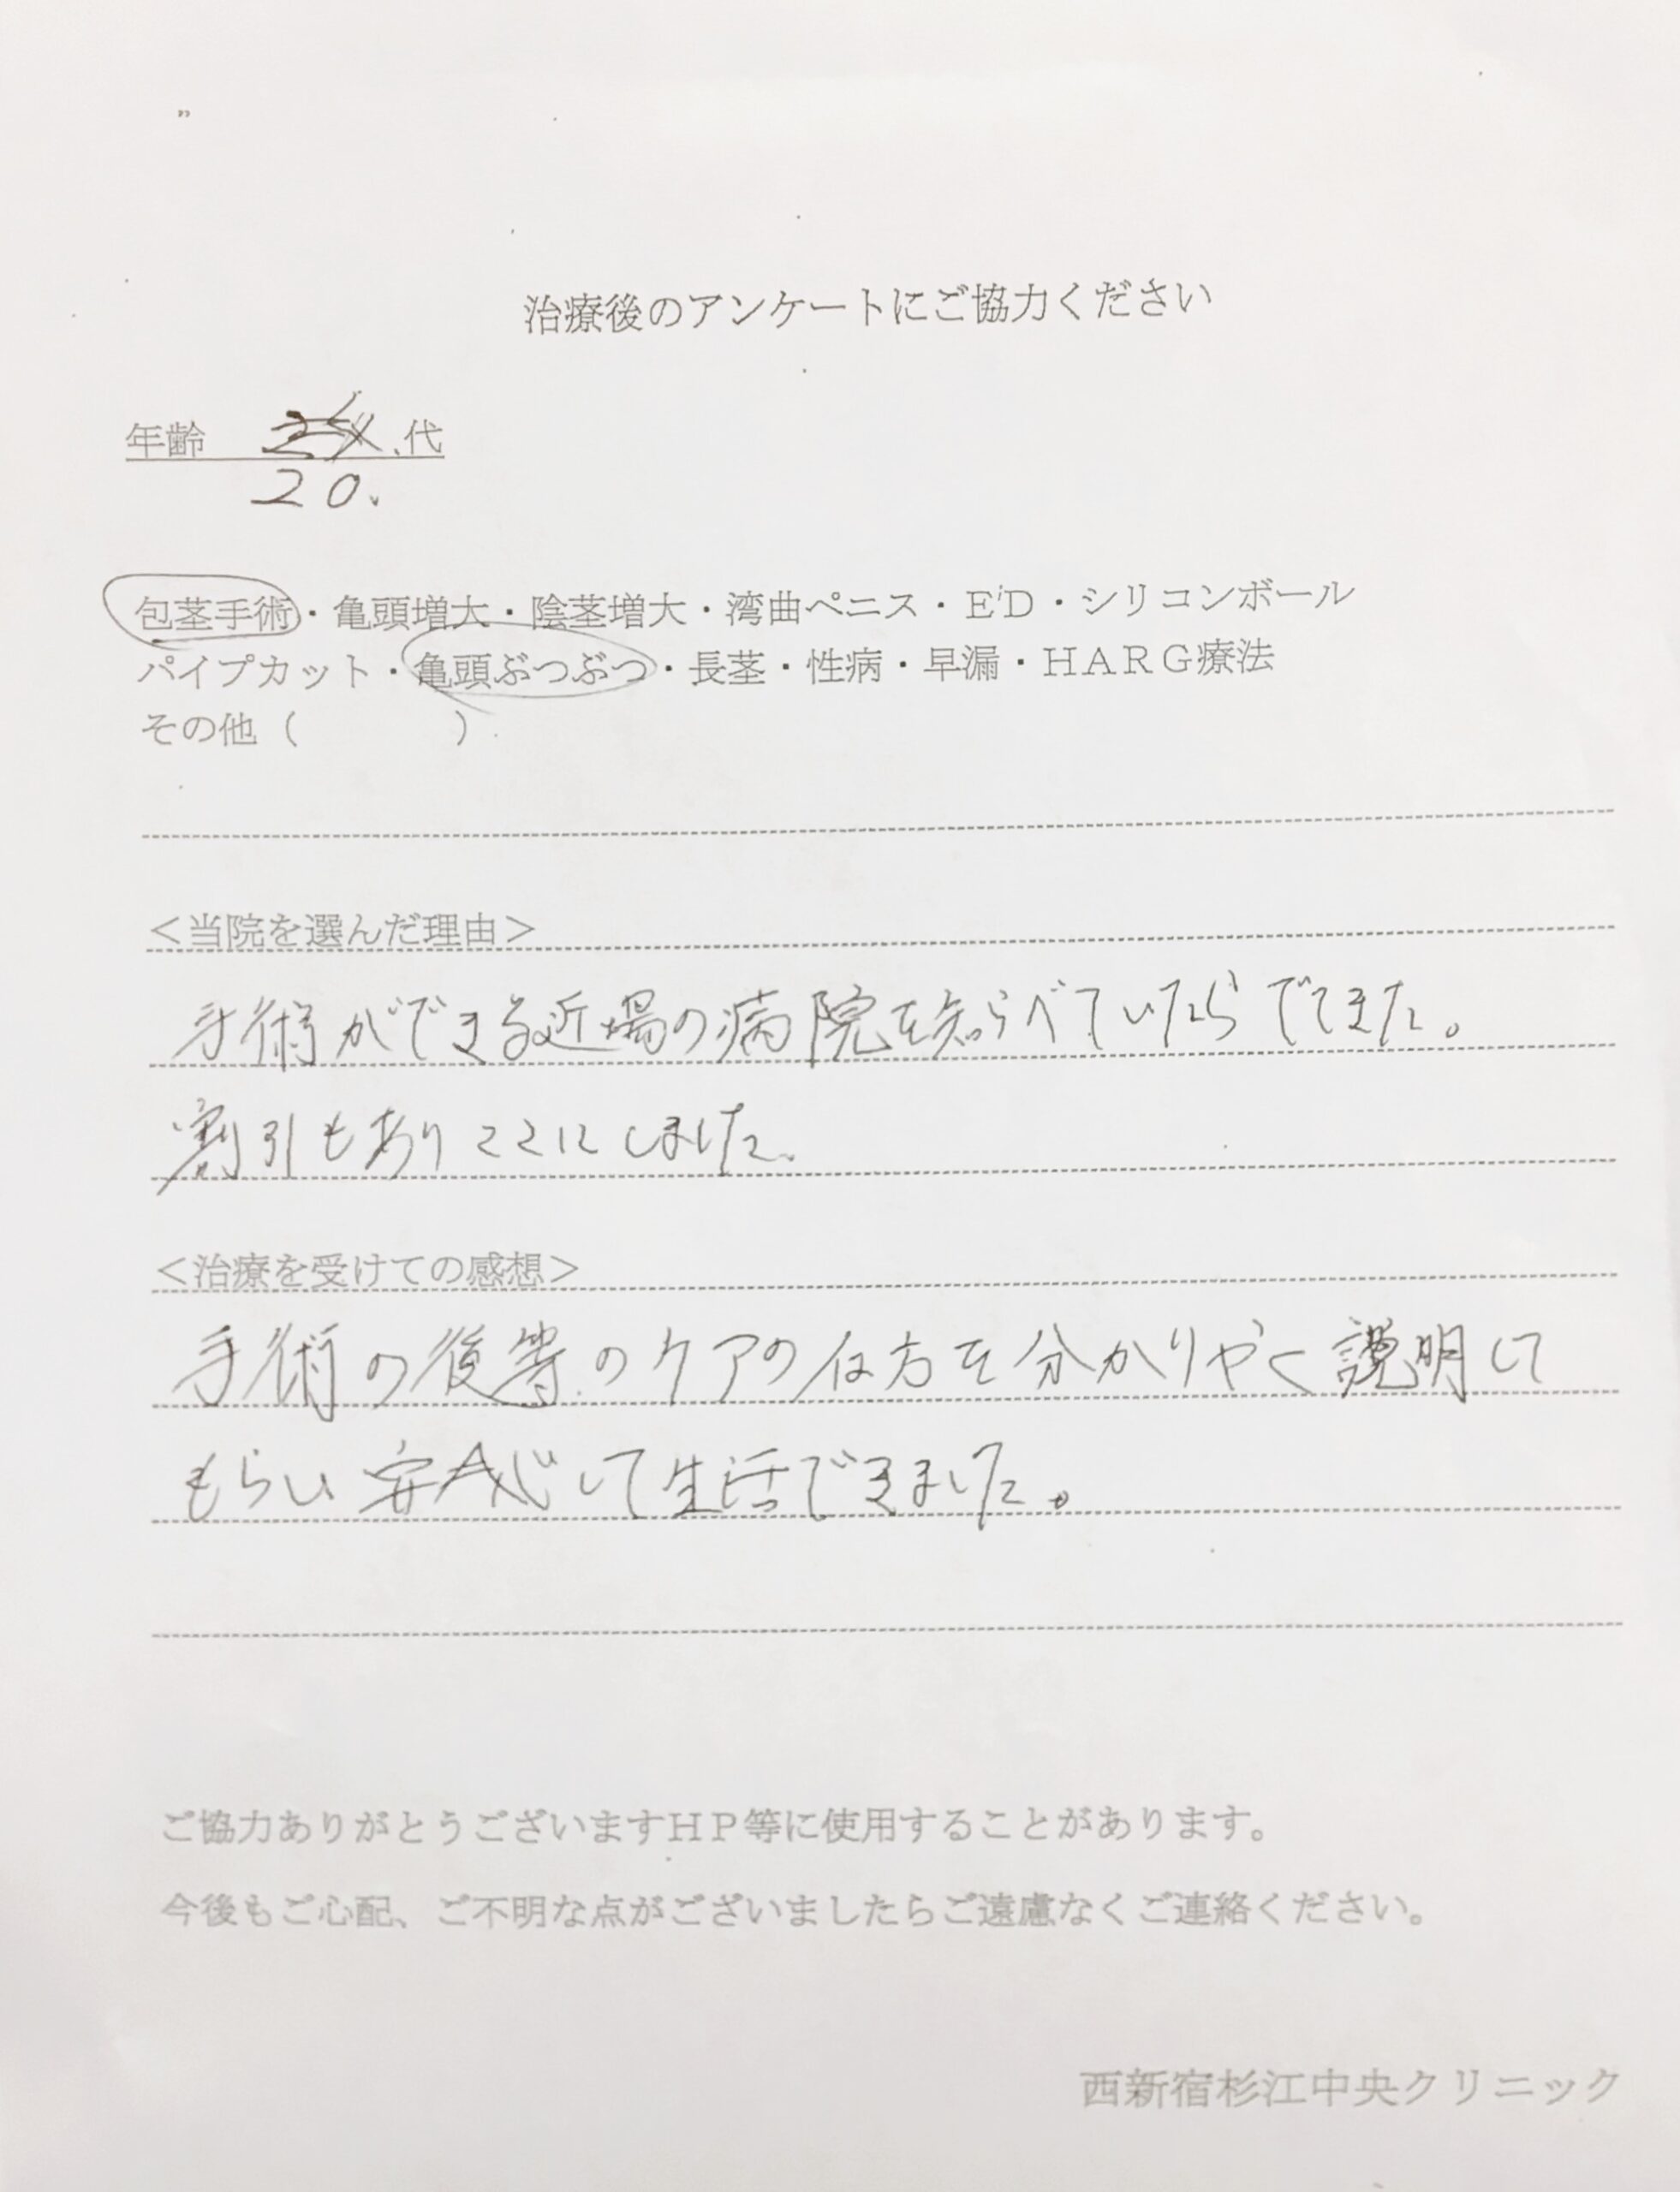 治療後のアンケートにご協力ください
年齢 代
20.
包茎手術・亀頭増大・陰茎増大・湾曲ペニス・ED・シリコンボール
パイプカット・亀頭ぶつぶつ・長茎・性病・早漏・HARG療法
その他（ ）
＜当院を選んだ理由＞
手術ができる近場の病院を知らべていたらでてきた。
割引もありここにしました。
＜治療を受けての感想＞
手術の後等のケアの仕方を分かりやく説明して
もらい安心して生活できました。
ご協力ありがとうございますHP等に使用することがあります。
今後もご心配、ご不明な点がございましたらご遠慮なくご連絡ください。
西新宿杉江中央クリニック